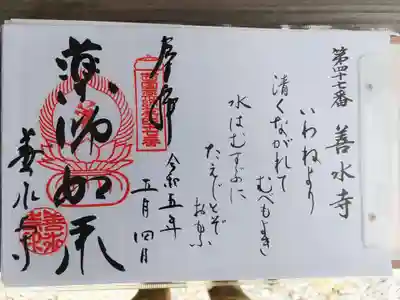 第四十七番 善水寺
いわねより
清くながれて
むべもよき
水はむすぶに
たえじとぞおもふ
奉拝
令和五年
五月四日
薬師如来
善水寺